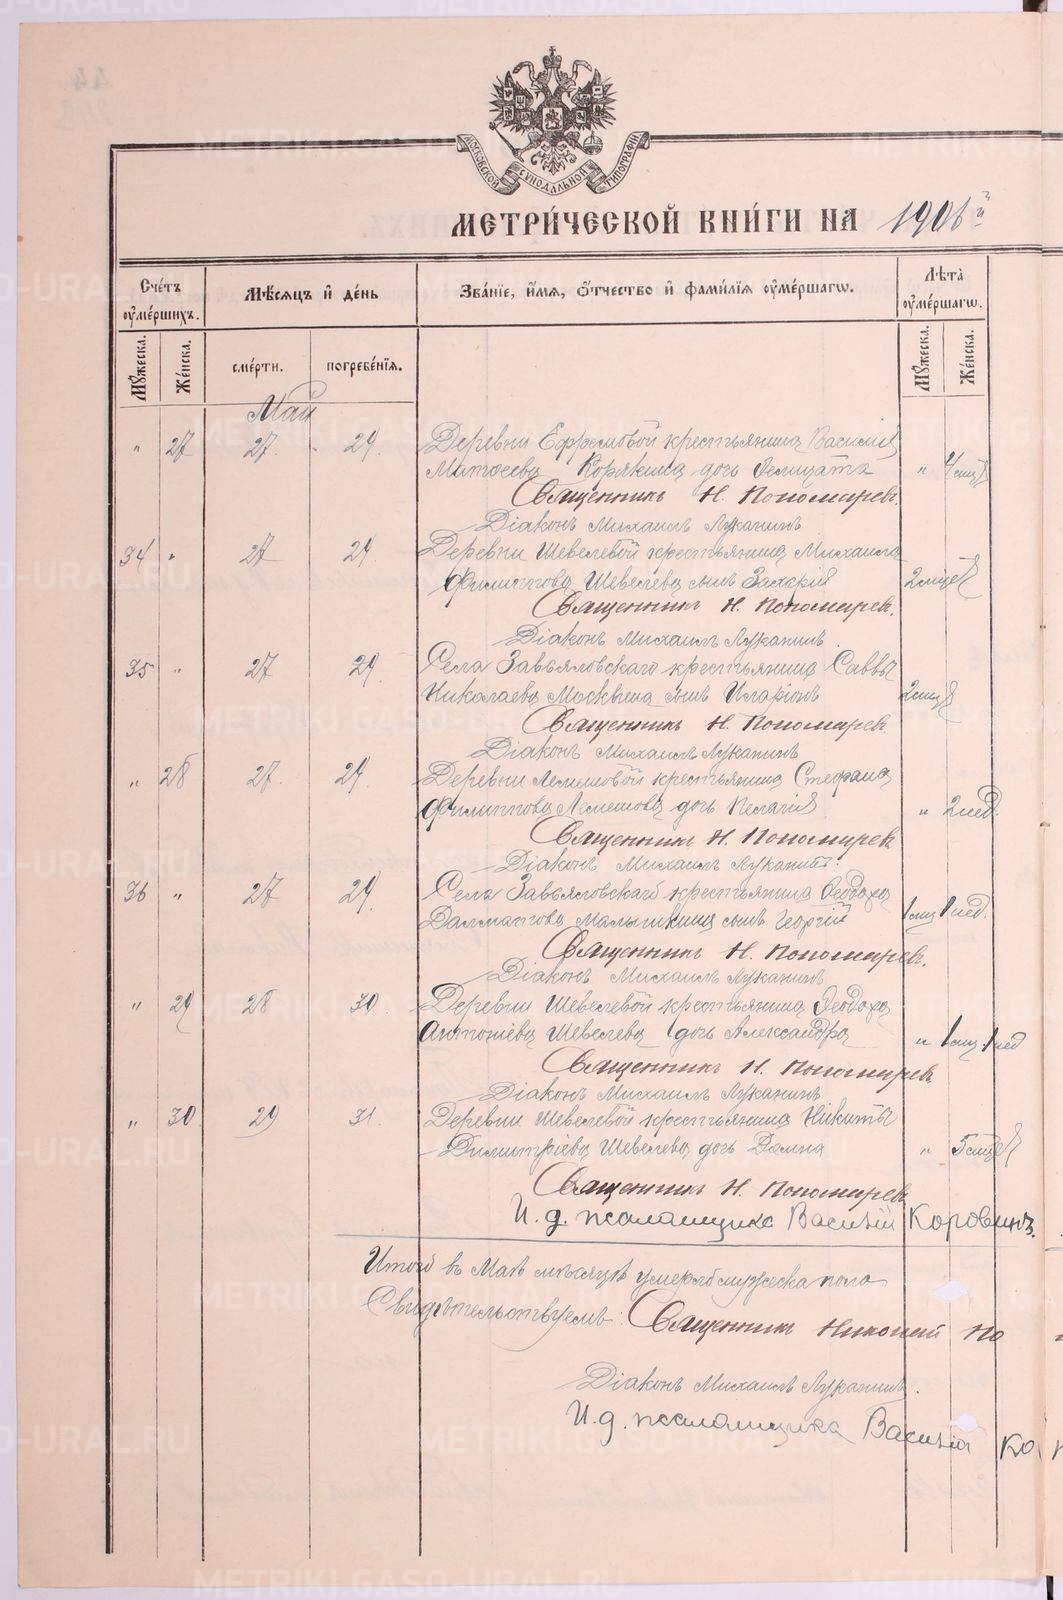 МОСКОВСКОЙ СѴНОДАЛЬНОЙ ТИПОГРАФІИ
МЕТРИ́ЧЕСКОЙ КНИ́ГИ НА 1906й
Сче́тъ ᲂу҆ме́ршихъ.
Мѣ́сяцъ и҆ де́нь
Зва́нїе, и҆́мѧ, ѻ҆́тчество и҆ фами́лїѧ ᲂу҆ме́ршагѡ.
Лѣ̀та ᲂу҆ме́ршагѡ.
Мꙋ́жеска. Же́нска. сме́рти. погребе́нїѧ. Мꙋ́жеска. Же́нска.
Май
" 27 27. 29. Деревни Ефремовой крестьянина Василія
Матѳеева Корякина дочь Фелицата " 4 мцѣ
Священникъ Н. Пономаревъ.
Діаконъ Михаилъ Луканинъ
34 " 27 29. Деревни Шевелевой крестьянина Михаила
Филиппова Шевелева сынъ 2 мцев
Священникъ Н. Пономаревъ.
Діаконъ Михаилъ Луканинъ.
35 " 27 29. Села Завьяловскаго крестьянина Саввы
Николаева Москвина сынъ Иларіонъ 2 мцѣ
Священникъ Н. Пономаревъ
Діаконъ Михаилъ Луканинъ
" 28 27. 29. Деревни Лемешовой крестьянина Стефана
Филиппова Лемешова дочь Пелагія " 2 нед.
Священникъ Н. Пономаревъ
Діаконъ Михаилъ Луканинъ.
36 " 27 29. Села Завьяловскаго крестьянина Ѳеодора
Далматова сынъ Георгій 1 мц 1 нед.
Священникъ Н. Пономаревъ.
Діаконъ Михаилъ Луканинъ
" 29 28 30. Деревни Шевелевой крестьянина Ѳеодора
Антоніева Шевелева дочь Александра " 1 мц. 1 нед
Священникъ Н. Пономаревъ
Діаконъ Михаилъ Луканинъ
" 30 29 31. Деревни Шевелевой крестьянина Никиты
Димитріева Шевелева дочь Домна " 5 мцев
Священникъ Н. Пономаревъ
И. д. псаломщика Василій Коровинъ.
Итого въ Маѣ мѣсяцѣ умерло мужеска пола
Свидѣтельствуемъ: Священникъ Николай По
Діаконъ Михаилъ Луканинъ.
И. д. псаломщика Василій Ко